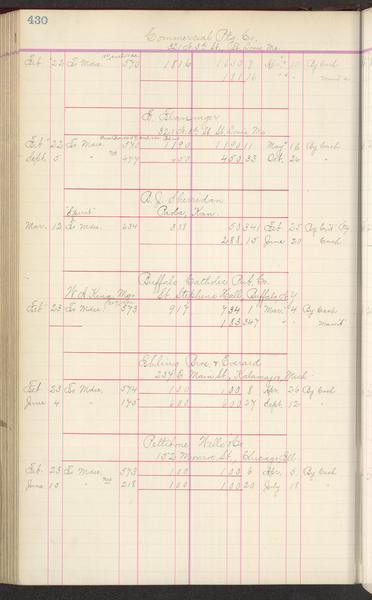 430
Commercial Ptg Co.
321 N. 3rd St. St. Louis Mo.
Feb 22 To Mdse. 570 1816 1635 3 10 By Cash
181 16 " "
E.
St. Louis Mo
Feb 22 To Mdse. 570 1190 1190 11 May 16 By Cash
Sept. 5 " 477 450 450 33 Oct. 26 "
A. J. Sheridan
"Spirit" Paola, Kan.
Mar. 12 To Mdse. 634 338 53 41 Feb 25 By
288 15 June 20 Cash
Buffalo Catholic Pub. Co.
W. A. King, Mgr St. Stephens Hall, Buffalo N.Y
Feb 23 To Mdse. 573 917 734 1 Mar. 4 By Cash
183 347 "
Ebling Bros. & Everard
234 E. Main St., Kalamazoo, Mich
Feb 23 To Mdse. 574 100 100 8 Apr. 26 By Cash
June 4 " 175 600 600 27 Sept. 12 "
Pettibone Wells Co
152 Monroe St., Chicago Ill.
Feb. 23 To Mdse. 573 100 100 6 Apr. 5 By Cash
June 10 " 218 100 100 20 July 18 "